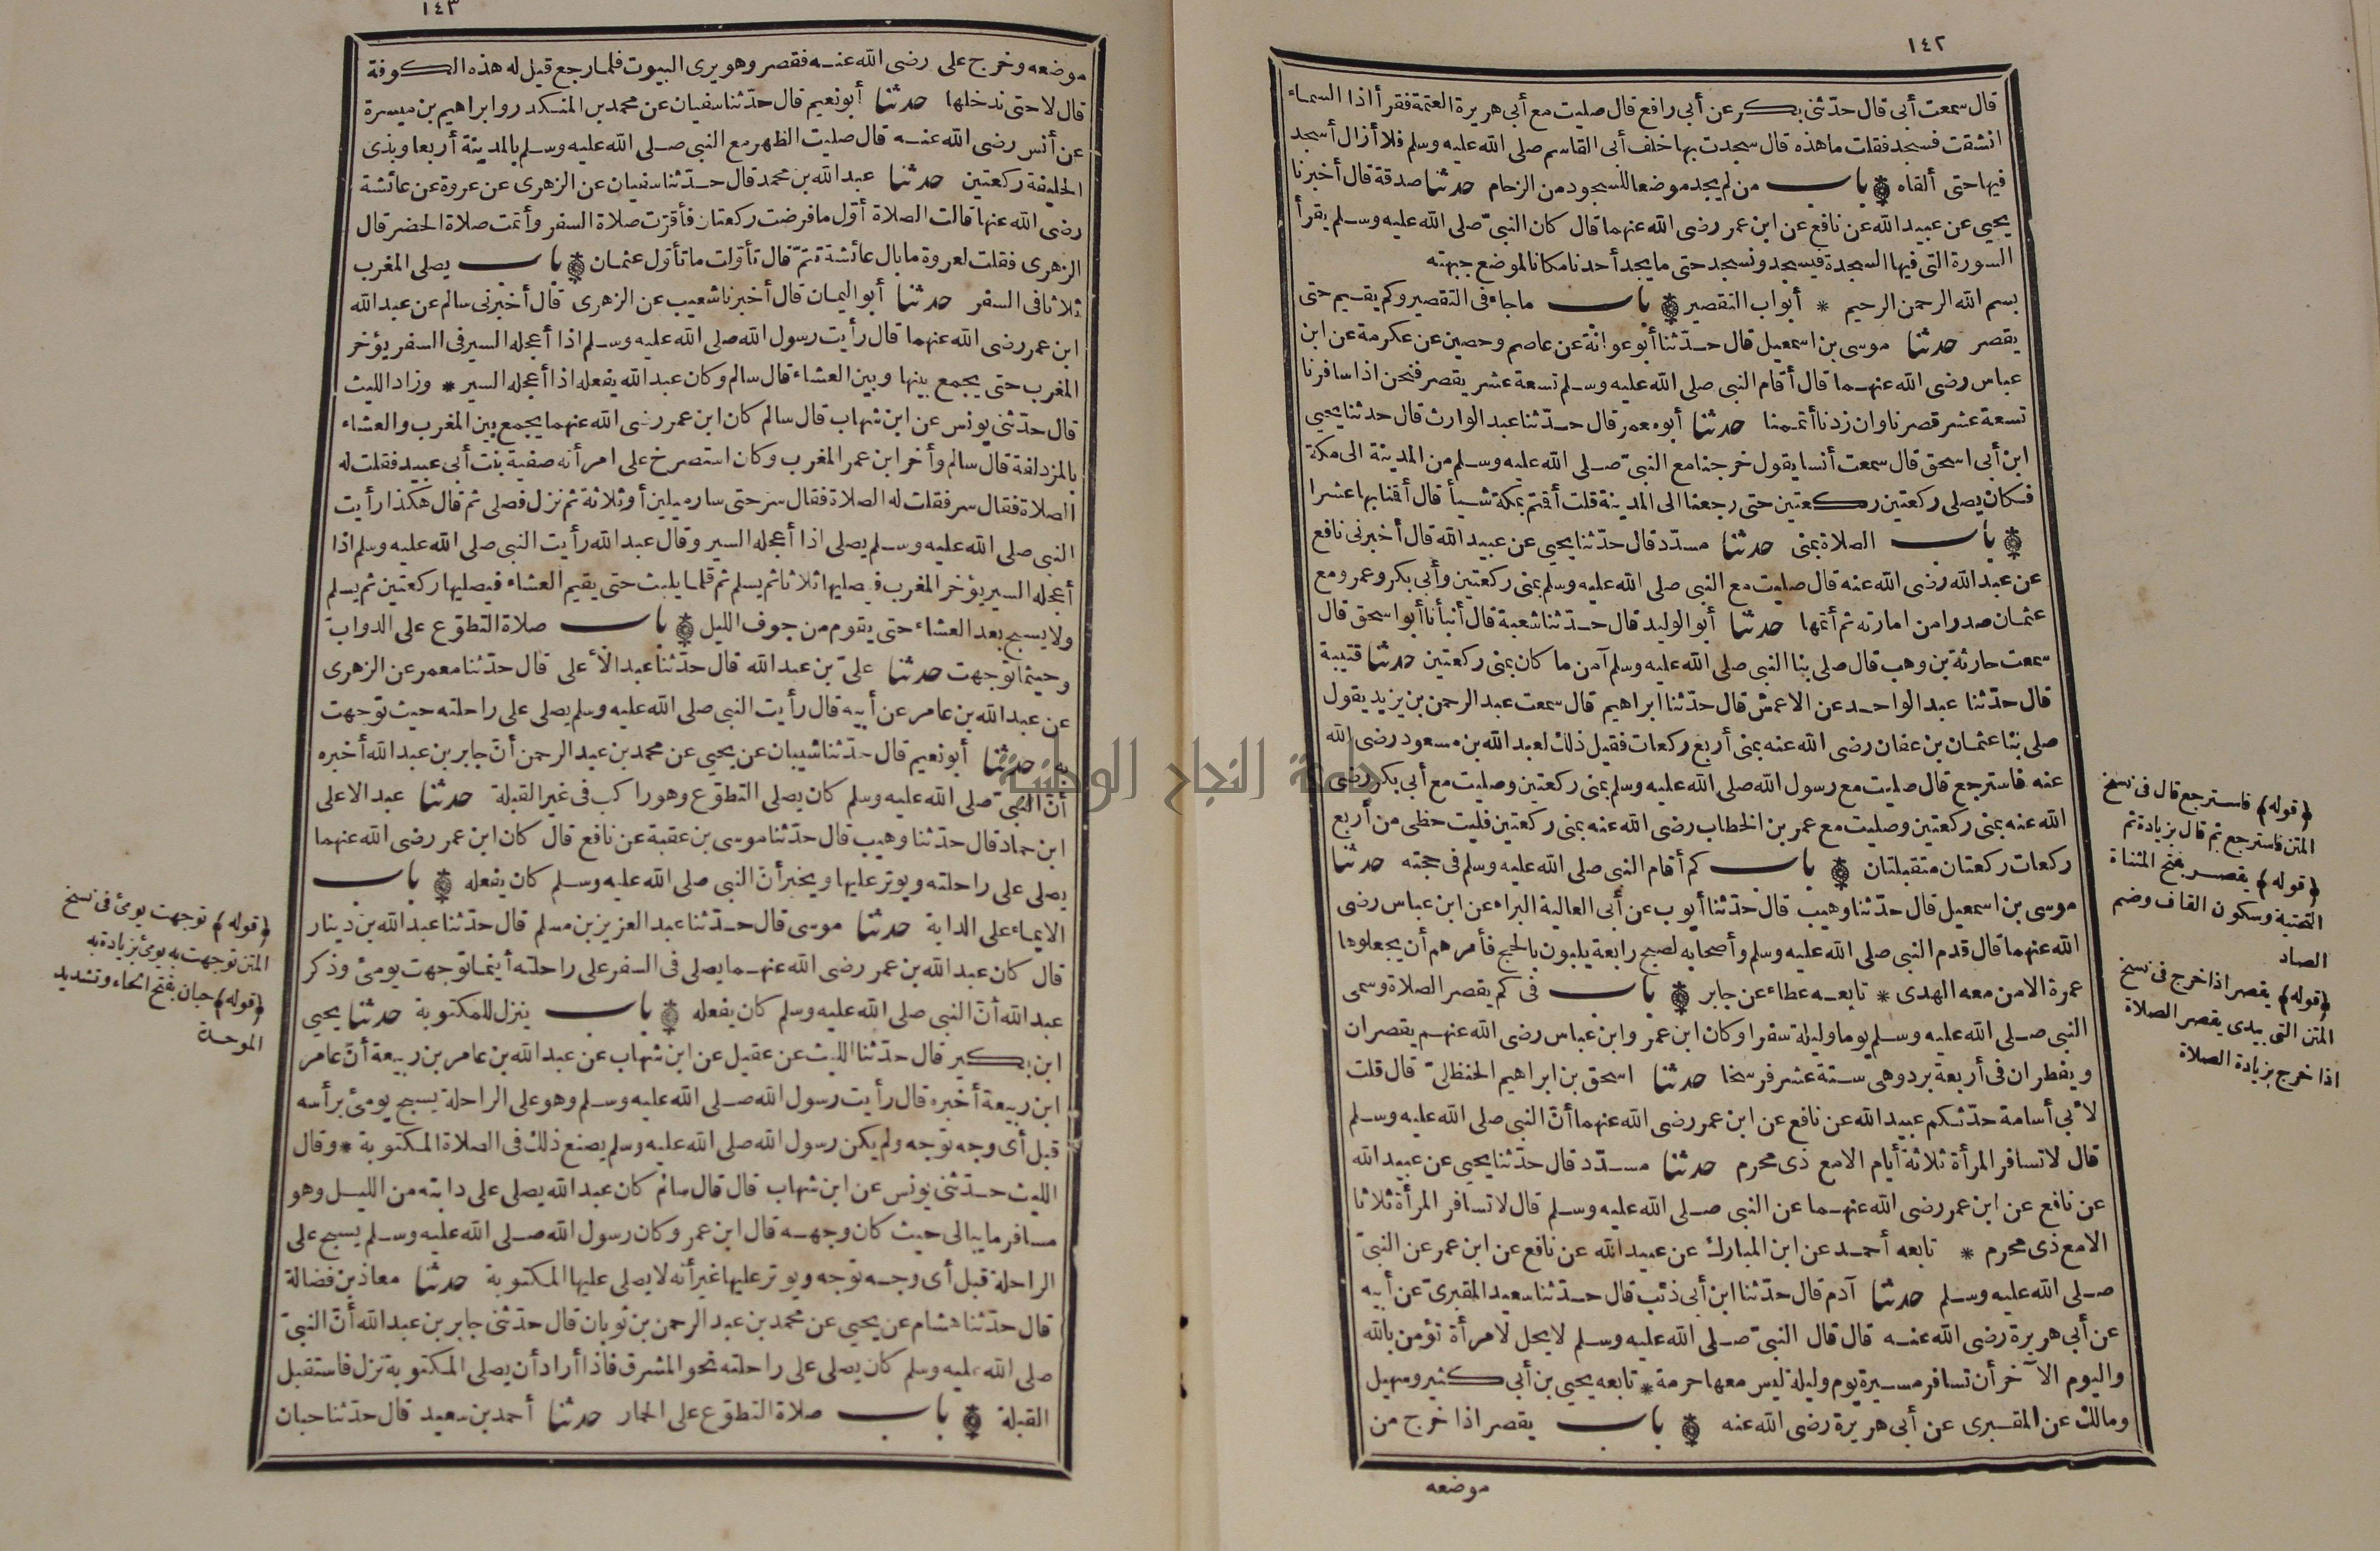 ١٤٢
قال سمعت أبى قال حدّثنى بكر عن أبى رافع قال صليت مع أبى هريرة العتمة فقرأ اذا السماء
انشقت فسجد فقلت ما هذه قال سجدت بها خلف أبى القاسم صلى الله عليه وسلم فلا أزال أسجد
فيها حتى ألقاه باب من لم يجد موضعا للسجود من الزحام حدثنا صدقة قال أخبرنا
يحيى عن عبيد الله عن نافع عن ابن عمر رضى الله عنهما قال كان النبىّ صلى الله عليه وسلم يقرأ
السورة التى فيها السجدة فيسجد ونسجد حتى ما يجد أحدنا مكانا لموضع جبهته
بسم الله الرحمن الرحيم * أبواب التقصير باب ما جاء فى التقصير وكم يقيم حتى
يقصر حدثنا موسى بن اسمعيل قال حدّثنا أبو عوانة عن عاصم وحصين عن عكرمة عن ابن
عباس رضى الله عنهما قال أقام النبى صلى الله عليه وسلم تسعة عشر يقصر فنحن اذا سافرنا
تسعة عشر قصرنا وان زدنا أتممنا حدثنا أبو معمر قال حدّثنا عبد الوارث قال حدثنا يحيى
ابن أبى اسحق قال سمعت أنسا يقول خرجنا مع النبىّ صلى الله عليه وسلم من المدينة الى مكة
فكان يصلى ركعتين ركعتين حتى رجعنا الى المدينة قلت أقتم بمكة شيأ قال أقنا بها عشرا
باب الصلاة بمنى حدثنا مسدّد قال حدّثنا يحيى عن عبيد الله قال أخبرنى نافع
عن عبد الله رضى الله عنه قال صليت مع النبى صلى الله عليه وسلم بمنى ركعتين وأبى بكر وعمر ومع
عثمان صدرا من امارته ثم أتمها حدثنا أبو الوليد قال حدّثنا شعبة قال أنبأنا أبو اسحق قال
سمعت حارثة بن وهب قال صلى بنا النبى صلى الله عليه وسلم آمن ما كان بمنى ركعتين حدثنا قتيبة
قال حدّثنا عبد الواحد عن الاعمش قال حدّثنا ابراهيم قال سمعت عبد الرحمن بن يزيد يقول
صلى بنا عثمان بن عفان رضى الله عنه بمنى أربع ركعات فقيل ذلك لعبد الله بن مسعود رضى الله
عنه فاسترجع قال صليت مع رسول الله صلى الله عليه وسلم بمنى ركعتين وصليت مع أبى بكر رضى
الله عنه بمنى ركعتين وصليت مع عمر بن الخطاب رضى الله عنه بمنى ركعتين فليت حظى من أربع
ركعات ركعتان متقبلتان باب كم أقام النبى صلى الله عليه وسلم فى حجته حدثنا
موسى بن اسمعيل قال حدّثنا وهيب قال حدّثنا أيوب عن أبى العالية البراء عن ابن عباس رضى
الله عنهما قال قدم النبى صلى الله عليه وسلم وأصحابه لصبح رابعة يلبون بالحج فأمرهم أن يجعلوها
عمرة الا من معه الهدى * تابعه عطاء عن جابر باب فى كم يقصر الصلاة وسمى
النبى صلى الله عليه وسلم يوما وليلة سفرا وكان ابن عمر وابن عباس رضى الله عنهم يقصران
ويفطران فى أربعة برد وهى ستة عشر فرسخا حدثنا اسحق بن ابراهيم الحنظلىّ قال قلت
لأبى أسامة حدّثكم عبيد الله عن نافع عن ابن عمر رضى الله عنهما أنّ النبى صلى الله عليه وسلم
قال لا تسافر المرأة ثلاثة أيام الا مع ذى محرم حدثنا مسدّد قال حدّثنا يحيى عن عبيد الله
عن نافع عن ابن عمر رضى الله عنهما عن النبى صلى الله عليه وسلم قال لا تسافر المرأة ثلاثا
الا مع ذى محرم * تابعه أحمد عن ابن المبارك عن عبيد الله عن نافع عن ابن عمر عن النبىّ
صلى الله عليه وسلم حدثنا آدم قال حدّثنا ابن أبى ذئب قال حدّثنا سعيد المقبرىّ عن أبيه
عن أبى هريرة رضى الله عنه قال قال النبىّ صلى الله عليه وسلم لا يحل لامرأة تؤمن بالله
واليوم الآخر أن تسافر مسيرة يوم وليلة ليس معها حرمة * تابعه يحيى بن أبى كثير وسهيل
ومالك عن المقبرى عن أبى هريرة رضى الله عنه باب يقصر اذا خرج من
موضعه
﴿قوله﴾ فاسترجع قال فى نسخ
المتن فاسترجع ثم قال بزيادة ثم
﴿قوله﴾ يقصر بفتح المثناة
التحتية وسكون القاف وضم
الصاد
﴿قوله﴾ يقصر اذا خرج فى نسخ
المتن التى بيدى يقصر الصلاة
اذا خرج بزيادة الصلاة
١٤٣
موضعه وخرج على رضى الله عنه فقصر وهو يرى البيوت فلما رجع قيل له هذه الكوفة
قال لا حتى ندخلها حدثنا أبو نعيم قال حدّثنا سفيان عن محمد بن المنكدر وابراهيم بن ميسرة
عن أنس رضى الله عنه قال صليت الظهر مع النبى صلى الله عليه وسلم بالمدينة أربعا وبذى
الحليفة ركعتين حدثنا عبد الله بن محمد قال حدّثنا سفيان عن الزهرى عن عروة عن عائشة
رضى الله عنها قالت الصلاة أوّل ما فرضت ركعتان فأقرّت صلاة السفر وأتمت صلاة الحضر قال
الزهرى فقلت لعروة ما بال عائشة تتمّ قال تأوّلت ما تأوّل عثمان باب يصلى المغرب
ثلاثا فى السفر حدثنا أبو اليمان قال أخبرنا شعيب عن الزهرى قال أخبرنى سالم عن عبد الله
ابن عمر رضى الله عنهما قال رأيت رسول الله صلى الله عليه وسلم اذا أعجله السير فى السفر يؤخر
المغرب حتى يجمع بينها وبين العشاء قال سالم وكان عبد الله يفعله اذا أعجله السير * وزاد الليث
قال حدّثنى يونس عن ابن شهاب قال سالم كان ابن عمر رضى الله عنهما يجمع بين المغرب والعشاء
بالمزدلفة قال سالم وأخر ابن عمر المغرب وكان استصرخ على امرأته صفية بنت أبى عبيد فقلت له
الصلاة فقال سر فقلت له الصلاة فقال سر حتى سار ميلين أو ثلاثة ثم نزل فصلى ثم قال هكذا رأيت
النبى صلى الله عليه وسلم يصلى اذا أعجله السير وقال عبد الله رأيت النبى صلى الله عليه وسلم اذا
أعجله السير يؤخر المغرب فيصليها ثلاثا ثم يسلم ثم قلما يلبث حتى يقيم العشاء فيصليها ركعتين ثم يسلم
ولا يسبح بعد العشاء حتى يقوم من جوف الليل باب صلاة التطوّع على الدوابّ
وحيثما توجهت حدثنا علىّ بن عبد الله قال حدّثنا عبد الأعلى قال حدّثنا معمر عن الزهرى
عن عبد الله بن عامر عن أبيه قال رأيت النبى صلى الله عليه وسلم يصلى على راحلته حيث توجهت
به حدثنا أبو نعيم قال حدّثنا شيبان عن يحيى عن محمد بن عبد الرحمن أنّ جابر بن عبد الله أخبره
أنّ النبىّ صلى الله عليه وسلم كان يصلى التطوّع وهو راكب فى غير القبلة حدثنا عبد الاعلى
ابن حماد قال حدّثنا وهيب قال حدّثنا موسى بن عقبة عن نافع قال كان ابن عمر رضى الله عنهما
يصلى على راحلته ويوتر عليها ويخبر أنّ النبى صلى الله عليه وسلم كان يفعله باب
الايماء على الدابة حدثنا موسى قال حدّثنا عبد العزيز بن مسلم قال حدّثنا عبد الله بن دينار
قال كان عبد الله بن عمر رضى الله عنهما يصلى فى السفر على راحلته أينما توجهت يومئ وذكر
عبد الله أنّ النبى صلى الله عليه وسلم كان يفعله باب ينزل للمكتوبة حدثنا يحيى
ابن بكير قال حدّثنا الليث عن عقيل عن ابن شهاب عن عبد الله بن عامر بن ربيعة أنّ عامر
ابن ربيعة أخبره قال رأيت رسول الله صلى الله عليه وسلم وهو على الراحلة يسبح يومئ برأسه
قبل أى وجه توجه ولم يكن رسول الله صلى الله عليه وسلم يصنع ذلك فى الصلاة المكتوبة * وقال
الليث حدّثنى يونس عن ابن شهاب قال قال سالم كان عبد الله يصلى على دابته من الليل وهو
مسافر ما يبالى حيث كان وجهه قال ابن عمر وكان رسول الله صلى الله عليه وسلم يسبح على
الراحلة قبل أى وجه توجه ويوتر عليها غير أنه لا يصلى عليها المكتوبة حدثنا معاذ بن فضالة
قال حدّثنا هشام عن يحيى عن محمد بن عبد الرحمن بن ثوبان قال حدّثنى جابر بن عبد الله أنّ النبىّ
صلى الله عليه وسلم كان يصلى على راحلته نحو المشرق فاذا أراد أن يصلى المكتوبة نزل فاستقبل
القبلة باب صلاة التطوّع على الحمار حدثنا أحمد بن سعيد قال حدّثنا حبان
﴿قوله﴾ توجهت يومئ فى نسخ
المتن توجهت به يومئ بزيادة به
﴿قوله﴾ حبان بفتح الحاء وتشديد
الموحدة
جامعة النجاح الوطنية